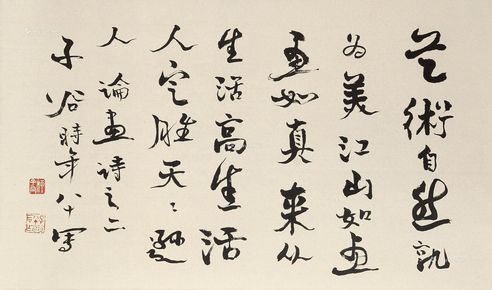 艺術自然孰
为美江山如画
画如真来从
生活高生活
人定胜天〻遜
人 論画诗之二
子谷時年八十写